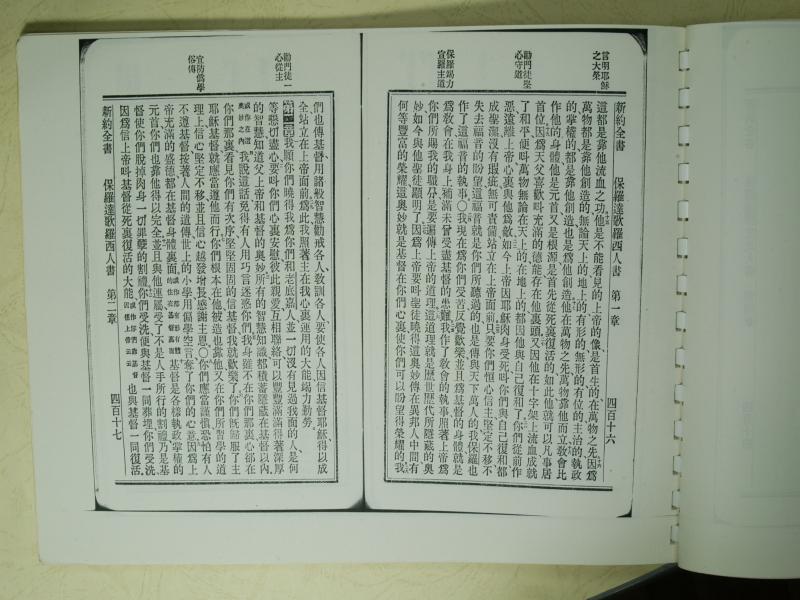 言明耶穌之大榮
勸門徒堅心守道
保羅竭力宣主道
新約全書 保羅達歌羅西人書 第一章 四百十六
道都是靠他流血之功他是不能看見的上帝的像是首生的在萬物之先因爲
萬物都是靠他創造的無論天上的地上的有形的無形的有位的主治的執政
的掌權的都是靠他創造也是爲他創造他在萬物之先萬物靠他而立敎會比
作他的身體他是元首又是根源是首先從死裏復活的如此他就可以凡事居
首位因爲天父喜歡叫充滿的德能存在他裏頭又因他在十字架上流血成就
了和平便叫萬物無論在天上的在地上的都因他與自己復和了你們從前作
惡遠離上帝心裏與他爲敵如今上帝因耶穌肉身受死叫你們與自己復和都
成聖潔沒有瑕疵無可責備站立在上帝面前只要你們恒心信主堅定不移不
失去福音的盼望這福音就是你們所聽過的也是傳與天下萬人的我保羅也
作了這福音的執事〇我現在爲你們受苦反覺歡樂並且爲基督的身體就是
爲敎會在我身上補滿未曾受盡基督的患難我作了敎會的執事照著上帝爲
你們所賜我的職分是要徧傳上帝的道理這道理就是歷世歷代所隱藏的奧
妙如今與他聖徒顯明了因爲上帝要叫聖徒曉得這奧妙傳在異邦人中間有
何等豐富的榮耀這奧妙就是基督在你們心裏使你們可以盼望得榮耀的我
勸門徒一心從主
宜防僞學俗傳
新約全書 保羅達歌羅西人書 第二章 四百十七
們也傳基督用諸般智慧勸戒各人敎訓各人要使各人因信基督耶穌得以成
全站立在上帝面前爲此我照著主在我心裏運用的大能竭力勤勞
第二章我願你們曉得我爲你們和老底嘉人並一切沒有見過我面的人是何
等懇切盡心要叫你們心裏安慰彼此親愛互相聯絡可以豐豐滿滿得著深厚
的智慧知道父上帝和基督的奧妙所有的智慧知識都積蓄隱藏在基督以內
我說這話免得有人用巧言迷惑你們我身雖不在你們那裏心卻在
你們那裏看見你們有次序堅堅固固的信基督我就歡樂了你們旣歸服了主
耶穌基督就應當遵他而行你們根本在他被造也靠他又在你們所習學的道
理上信心堅定不移並且信心越發增長感謝主恩〇你們應當謹愼恐怕有人
不遵基督按著人間的遺傳世上的小學用僞學空言奪了你們的心意因爲上
帝充滿的盛德都在基督身體裏面基督是各樣執政掌權的
元首你們也靠他得以完全並且與他連屬受了不是人手所行的割禮乃是基
督使你們脫掉肉身一切罪孽的割禮你們受洗便與基督一同葬埋你們受洗
因爲信上帝叫基督從死裏復活的大能也與基督一同復活